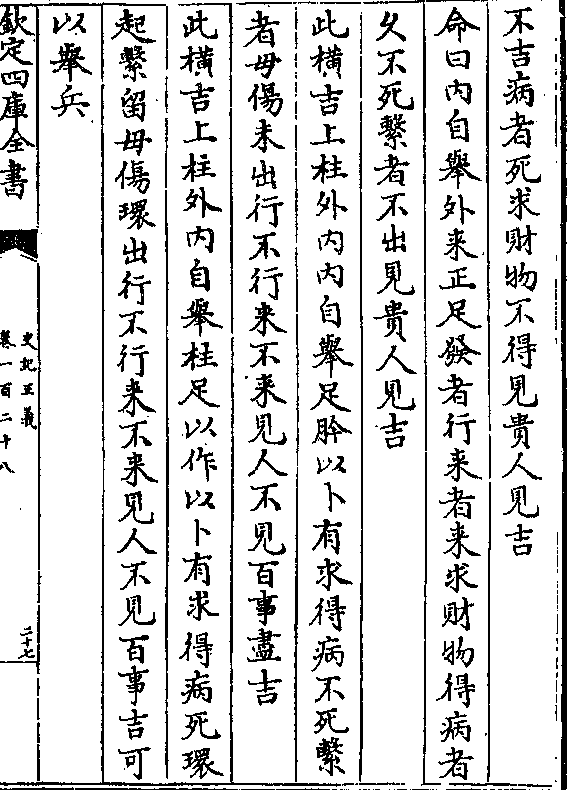 不吉病者死求財物不得見貴人見吉
命曰内自舉外来正足發者行来者来求財物得病者
久不死繫者不出見貴人見吉
此横吉上柱外内内自舉足肣以卜有求得病不死繫
者毋傷未出行不行来不来見人不見百事盡吉
此横吉上柱外内自舉柱足以作以卜有求得病死環
起繫留毋傷環出行不行来不来見人不見百事吉可
以舉兵
欽定四庫全書
史記正義
卷一百二十八
二十七